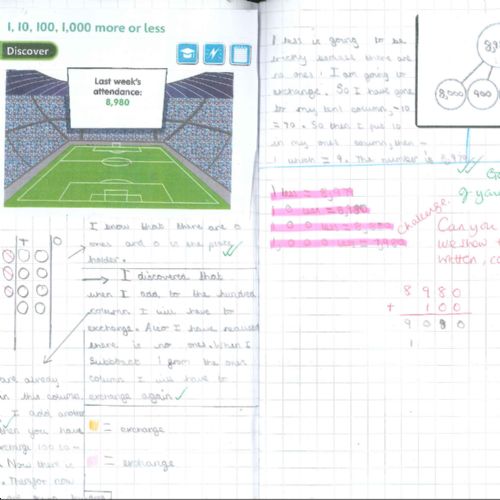 1, 10, 100, 1,000 more or less
Discover
Last week's
attendance:
8,980
T O
I know that there are 0
ones and 0 is the place
holder.
I discovered that
when I add to the hundred
column I will have to
exchange. Also I have realised
there is no ones. When I
subtract 1 from the ones
column I will have to
exchange again.
= exchange
= exchange
are already
in this column.
I add another
then you have
100 so
Now there is
now
1 less is going to be
tricky because there are
no ones! I am going to
exchange. So I have gone
to my tens column, -10
= 70. So then I put 10
in my ones column, then -
1 which = 9. The number is 8,979
8,000
900
1 less = 8,979
1 0 less =
1 0 0 less =
1, 0 0 0 less = 7,980
Challenge.
Can you
we show t
written, co
8 9 8 0
+ 1 0 0
9 0 8 0
1